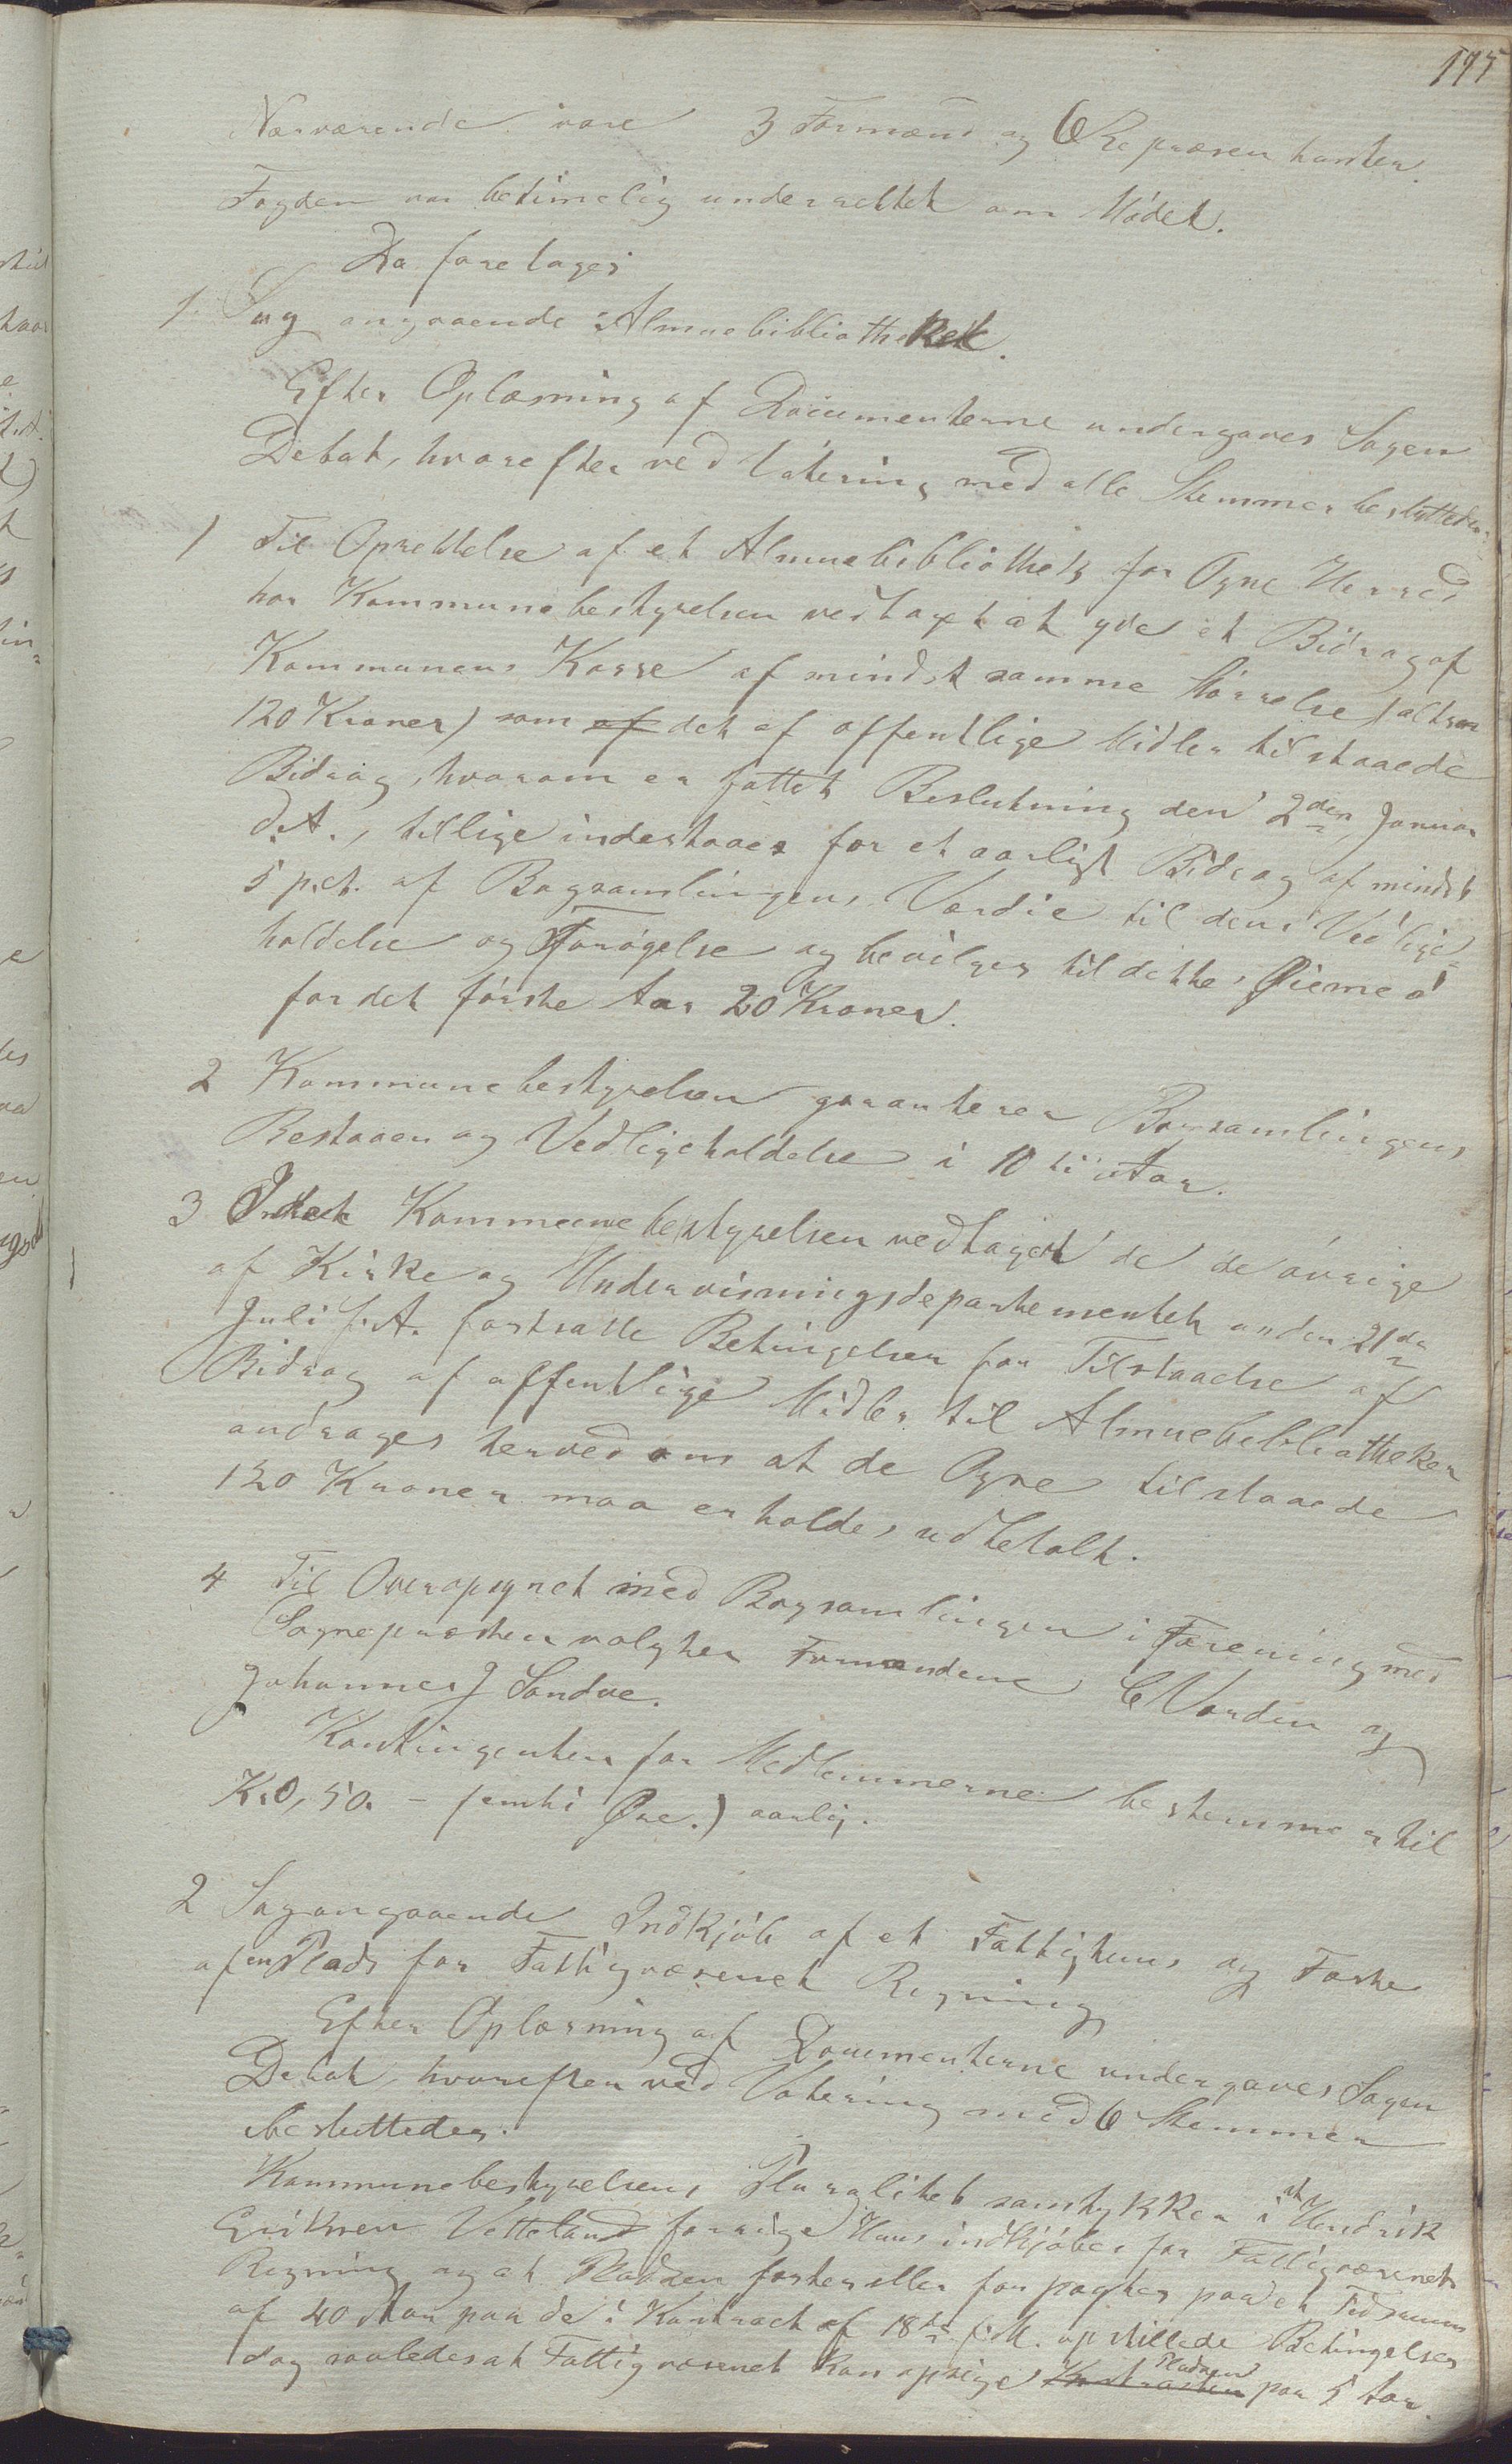 195
Nærværende vare 3 Formænd og 6 Repræsentanter.
Fogden var betimelig underrettet om Mødet.
Da foretages
1. Sag angaaende Almuebibliotheket.
Efter Oplæsning af Documenterne undergaves Sagen
Debat, hvorefter ved Votering med alle Stemmer besluttedes:
1 Til Oprettelse af et Almuebibliothek for Ogne Herred
har Kommunebestyrelsen vedtaget at yde et Bidrag af
Kommunens Kasse af mindst samme Størrelse (altsaa
120 Kroner) som af det af offentlige Midler tilstaaede
Bidrag, hvorom er fattet Beslutning den 2den Januar
d.A., tillige indestaaes for et aarligt Bidrag af mindst
5 p.ct. af Bogsamlingens Værdie til dens Vedlige=
holdelse og Forøgelse og bevilges til dette Øiemed
for det første Aar 20 Kroner.
2 Kommunebestyrelsen garanterer Bogsamlingens
Bestaaen og Vedligeholdelse i 10 ti Aar.
3 Idet Kommunebestyrelsen vedtager de de øvrige
af Kirke og Undervisningsdepartementet under 21de
Juli f.A. fastsatte Betingelser for Tilstaaelse af
Bidrag af offentlige Midler til Almuebibliotheker
andrages herved om at de Ogne tilstaaede
120 Kroner maa erholdes udbetalt.
4 Til Overopsynet med Bogsamlingen i Forening med
Sognepræsten valgtes Formændene C Varden og
Johannes J Sandve.
Kontingenten for Medlemmerne bestemmes til
Kr 0,50. - femti Øre.) aarlig.
2 Sag angaaende Indkjøb af et Fattighuus og Fæste
af en Plads for Fattigvæsenets Regning
Efter Oplæsning af Documenterne undergaves Sagen
Debat, hvorefter ved Votering med 6 Stemmer
besluttedes.
Kommunebestyrelsens Pluralitet samtykker i at Hendrik
Eriksen Vetteland forrige Huus indkjøbes for Fattigvæsenets
Regning og at Pladsen fæstes eller forpagtes paa et Tidsrum
af 40 Aar paa de i Kontract af 18de f.M. opstillede Betingelser
dog saaledes at Fattigvæsenet kan opsige Kontracten Pladsen paa 5 Aar.